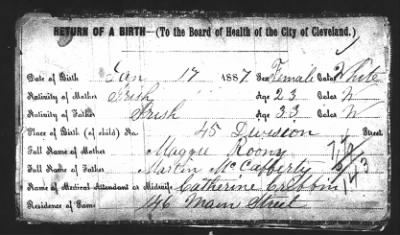 RETURN OF A BIRTH—(To the Board of Health of the City of Cleveland.)
Date of Birth Jan 17 1887. Sex Female Color White
Nativity of Mother Irish Age 23 Color W
Nativity of Father Irish Age 33 Color W
Place of Birth (of child) No. 45 Division Street
Full Name of Mother Maggie Roony
Full Name of Father Martin McCafferty
Name of Medical Attendant or Midwife Catherine Cribbin
Residence of Same 146 Main Street
143